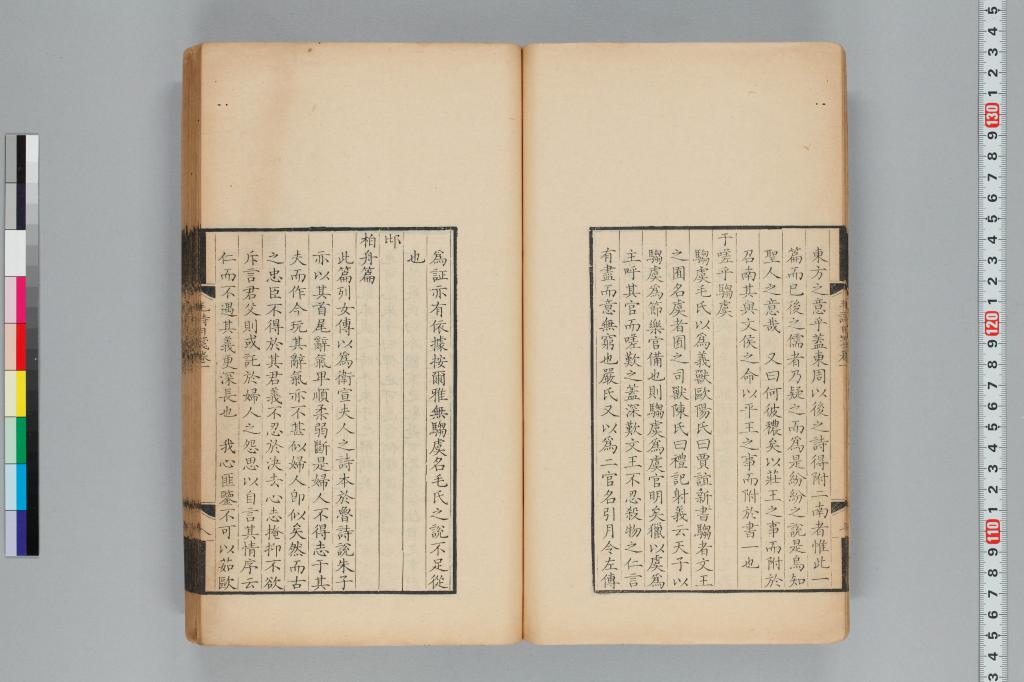 東方之意乎蓋東周以後之詩得附二南者惟此一
篇而已後之儒者乃疑之而爲是紛紛之說是烏知
聖人之意哉　又曰何彼穠矣以莊王之事而附於
召南其與文侯之命以平王之事而附於書一也
于嗟乎騶虞
騶虞毛氏以爲義獸歐陽氏曰賈誼新書騶者文王
之囿名虞者囿之司獸陳氏曰禮記射義云天子以
騶虞爲節樂官備也則騶虞爲虞官明矣獵以虞爲
主呼其官而嗟歎之蓋深歎文王不忍殺物之仁言
有盡而意無窮也嚴氏又以爲二官名引月令左傳
爲証亦有依據按爾雅無騶虞名毛氏之說不足從
也
邶
柏舟篇
此篇列女傳以爲衛宣夫人之詩本於魯詩說朱子
亦以其首尾辭氣卑順柔弱斷是婦人不得志于其
夫而作今玩其辭氣亦不甚似婦人卽似矣然而古
之忠臣不得於其君義不忍於决去心志掩抑不欲
斥言君父則或託於婦人之怨思以自言其情序云
仁而不遇其義更深長也　我心匪鑒不可以茹歐